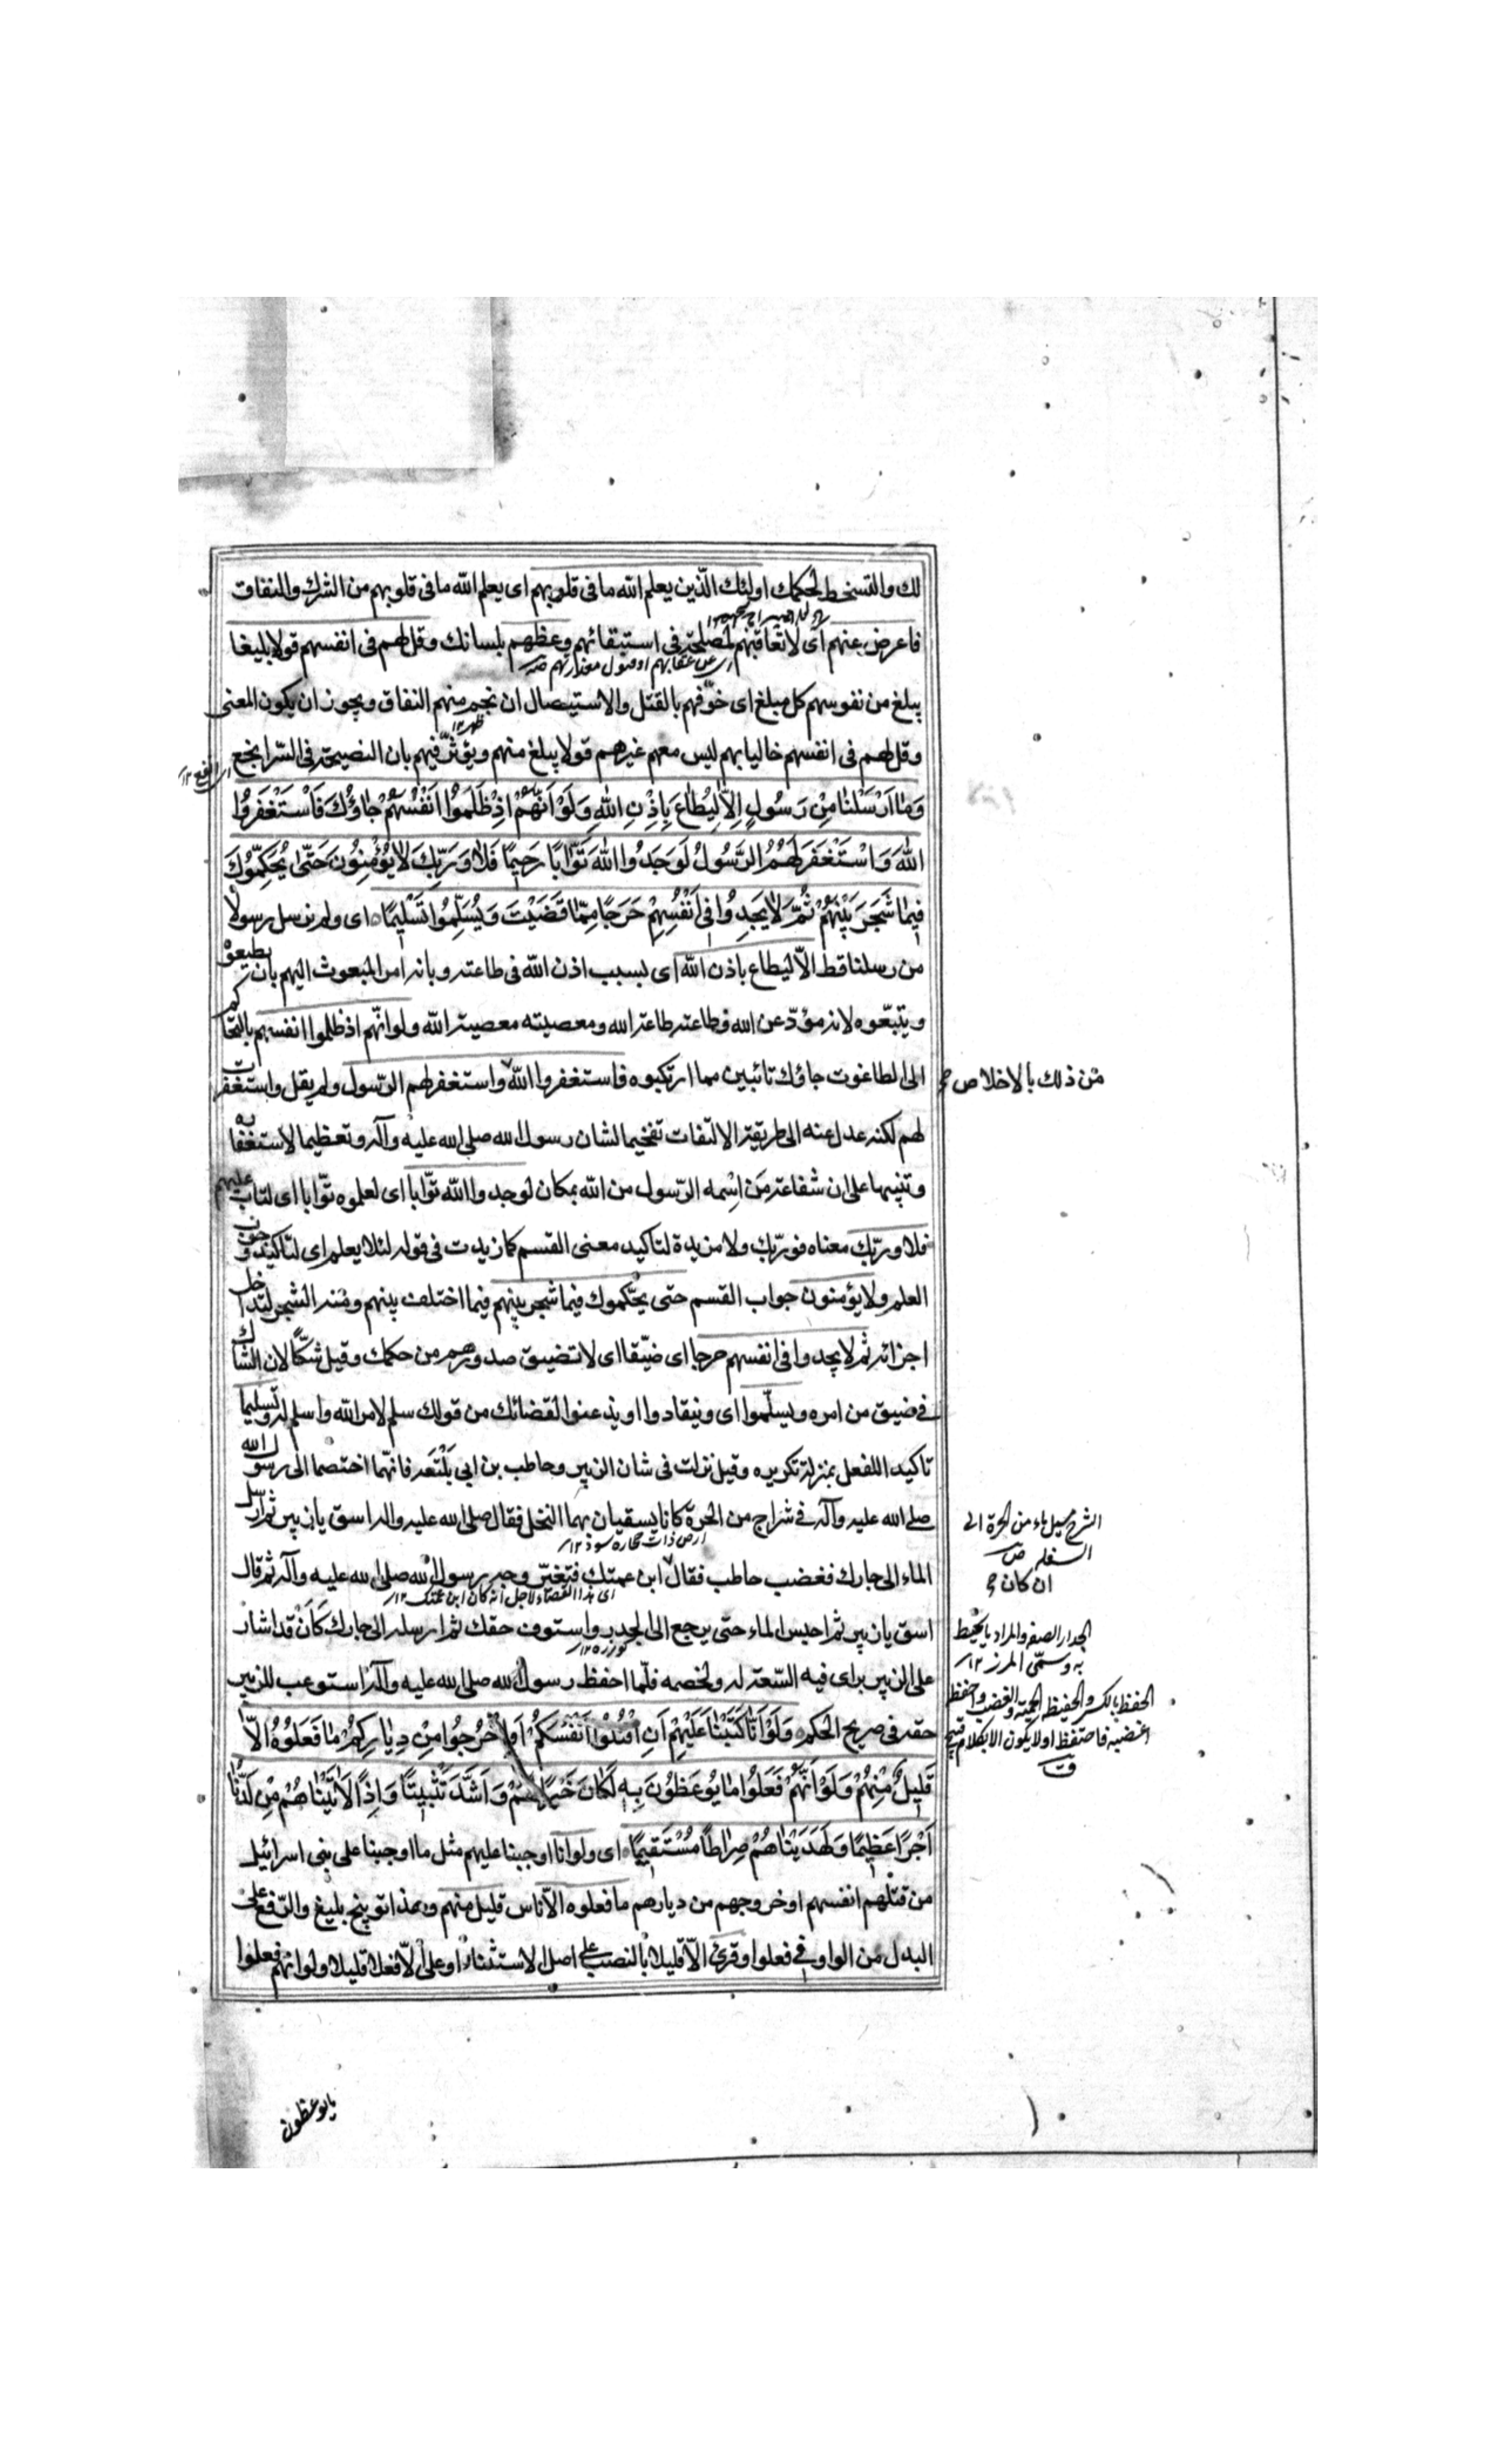 لك والتسخط لحكمك اولئك الّذين يعلم الله ما فى قلوبهم اى يعلم الله ما فى قلوبهم من الشرك والنفاق
فاعرض عنهم اى لا تعاقبهم لمصلحة فى استبقائهم وعظهم بلسانك وقل لهم فى انفسهم قولا بليغا
اى عن عقابهم او قبول معذارتهم
يبلغ من نفوسهم كل مبلغ اى خوّفهم بالقتل والاستيصال ان نجم منهم النفاق ويجوز ان يكون المعنى
ظهر ١٢
وقل لهم فى انفسهم خاليا بهم ليس معهم غيرهم قولا يبلغ منهم ويؤثّر فيهم بان النصيحة فى السّر انجع
اى انفع ١٢
وَمٰا اَرْسَلْنٰا مِنْ رَسُولٍ اِلّاٰ لِيُطٰاعَ بِاِذْنِ اللهِ وَلَوْ اَنَّهُمْ اِذْ ظَلَمُوا اَنْفُسَهُمْ جٰاؤُكَ فَاسْتَغْفَرُوا
اللهَ وَاسْتَغْفَرَ لَهُمُ الرَّسُولُ لَوَجَدُوا اللهَ تَوّٰابًا رَحِيمًا فَلاٰ وَرَبِّكَ لاٰ يُؤْمِنُونَ حَتّٰى يُحَكِّمُوكَ
فِيمٰا شَجَرَ بَيْنَهُمْ ثُمَّ لاٰ يَجِدُوا فِى اَنْفُسِهِمْ حَرَجًا مِمّٰا قَضَيْتَ وَيُسَلِّمُوا تَسْلِيمًا اى ولم نرسل رسولا
من رسلنا قط الّا ليطاع باذن الله اى بسبب اذن الله فى طاعته وبانه امر المبعوث اليهم بان يطيعوه
ويتبّعوه لانه مؤدّ عن الله فطاعته طاعة الله ومعصيته معصية الله ولو انّهم اذ ظلموا انفسهم بالتحاكم
الى الطاغوت جاؤك تائبين مما ارتكبوه فاستغفروا الله واستغفر لهم الرّسول ولم يقل واستغفرت
من ذلك بالاخلاص
لهم لكنه عدل عنه الى طريقة الالتفات تفخيما لشان رسول الله صلى الله عليه وآله وتعظيما لاستغفاره
وتنبيها على ان شفاعة من اسمه الرّسول من الله بمكان لوجدوا الله توّابا اى لعلموه توّابا اى لتاب عليهم
فلا وربّك معناه فوربّك ولا مزيدة لتاكيد معنى القسم كما زيدت فى قوله لئلا يعلم اى لتاكيد وجوب
العلم ولا يؤمنون جواب القسم حتى يحكّموك فيما شجر بينهم فيما اختلف بينهم ومنه الشجر لتداخل
اجزائه ثم لا يجدوا فى انفسهم حرجا اى ضيّقا اى لا تضيق صدورهم من حكمك وقيل شكّا لان الشاك
فى ضيق من امره ويسلّموا اى وينقادوا او يذعنوا لقضائك من قولك سلم لامر الله واسلم له وتسليما
تاكيد اللفعل بمنزلة تكريره وقيل نزلت فى شان الزبير وحاطب بن ابي بَلْتَعَة فانهّما اختصما الى رسول الله
صلى الله عليه وآله فى شراج من الحرة كانا يسقيان بهما النخل فقال صلى الله عليه واله اسق يا زبير ثم ارسل
الشرج مسيل ماء من الحرة الى
السهل ص
ارض ذات حجارة سود ١٢
الماء الى جارك فغضب حاطب فقال ابن عمتك فتغيّر وجه رسول الله صلى الله عليه وآله ثم قال
ان كان
اى هذا القضاء لاجل انه كان ابن عمتك ١٢
اسق يا زبير ثم احبس الماء حتى يرجع الى الجدر واستوف حقك ثم ارسله الى جارك كَانَ قد اشار
على الزبير براى فيه السّعة له ولخصمه فلمّا احفظ رسول الله صلى الله عليه وآله استوعب للزبير
حقه فى صريح الحكم وَلَوْ اَنّٰا كَتَبْنٰا عَلَيْهِمْ اَنِ اقْتُلُوا اَنْفُسَكُمْ اَوِ اخْرُجُوا مِنْ دِيٰارِكُمْ مٰا فَعَلُوهُ اِلاّٰ
قَلِيلٌ مِنْهُمْ وَلَوْ اَنَّهُمْ فَعَلُوا مٰا يُوعَظُونَ بِهِ لَكٰانَ خَيْرًا لَهُمْ وَاَشَدَّ تَثْبِيتًا وَاِذًا لَاٰتَيْنٰاهُمْ مِنْ لَدُنّٰا
اَجْرًا عَظِيمًا وَلَهَدَيْنٰاهُمْ صِرٰاطًا مُسْتَقِيمًا اى ولو انا اوجبنا عليهم مثل ما اوجبنا على بنى اسرائيل
من قتلهم انفسهم او خروجهم من ديارهم ما فعلوه الّا ناس قليل منهم وهذا توبيخ بليغ والرّفع على
البدل من الواو فى فعلوا وقرئ الّا قليلا بالنصب على اصل الاستثناء او على الّا فعلا قليلا ولو انهّم فعلوا
ما يوعظون